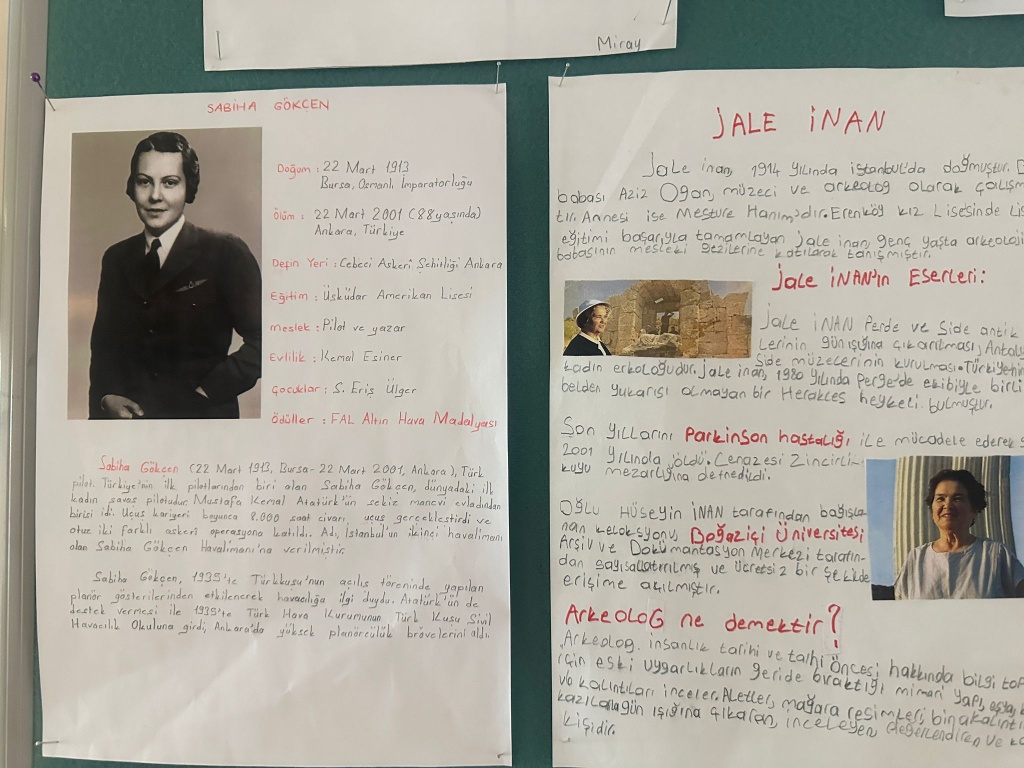 Miray
SABİHA GÖKÇEN
Doğum : 22 Mart 1913
Bursa, Osmanlı İmparatorluğu
Ölüm : 22 Mart 2001 (88 yaşında)
Ankara, Türkiye
Defin Yeri : Cebeci Askeri Şehitliği Ankara
Eğitim : Üsküdar Amerikan Lisesi
Meslek : Pilot ve yazar
Evlilik : Kemal Esiner
Çocuklar : S. Eriş Ülger
Ödüller : FAL Altın Hava Madalyası
Sabiha Gökçen (22 Mart 1913, Bursa - 22 Mart 2001, Ankara), Türk
pilot. Türkiye'nin ilk pilotlarından biri olan Sabiha Gökçen, dünyadaki ilk
kadın savaş pilotudur. Mustafa Kemal Atatürk'ün sekiz manevi evladından
birisi idi. Uçuş kariyeri boyunca 8.000 saat civarı uçuş gerçekleştirdi ve
otuz iki farklı askeri operasyona katıldı. Adı, İstanbul'un ikinci havalimanı
olan Sabiha Gökçen Havalimanı'na verilmiştir.
Sabiha Gökçen, 1935'te Türkkuşu'nun açılış töreninde yapılan
planör gösterilerinden etkilenerek havacılığa ilgi duydu. Atatürk'ün de
destek vermesi ile 1935'te Türk Hava Kurumunun Türk Kuşu Sivil
Havacılık Okuluna girdi; Ankara'da yüksek planörcülük brövelerini aldı.
JALE İNAN
Jale inan, 1914 yılında istanbul'da doğmuştur.
babası Aziz Ogan, müzeci ve arkeolog olarak çalışm
tır. Annesi ise Mesture Hanım'dır. Erenköy kız Lisesinde Lis
eğitimi başarıyla tamamlayan Jale inan, genç yaşta arkeoloji
babasının mesleki gezilerine katılarak tanışmıştır.
Jale İNAN'ın Eserleri:
Jale İNAN Perde ve Side antik
Lerinin gün ışığına çıkarılması, Antaly
Side müzelerinin kurulması. Türkiye'nin
kadın erkoloğudur. Jale inan, 1980 yılında Perge'de ekibiyle birli
belden yukarısı olmayan bir Herakles heykeli bulmuştur.
Son yıllarını Parkinson hastalığı ile mücadele ederek
2001 yılında öldü. Cenazesi Zincirli-
kuyu mezarlığına defnedildi.
Oğlu Hüseyin İNAN tarafından bağışla
nan keloksyonu Boğaziçi Üniversitesi
Arşiv ve Dokümantasyon Merkezi tarafın-
dan sayısallaştırılmış ve ücretsiz bir şekilde
erişime açılmıştır.
Arkeolog ne demektir?
Arkeolog, insanlık tarihi ve tarih öncesi hakkında bilgi top
için eski uygarlıkların geride bıraktığı mimari yapı, eşya,
vb kalıntıları inceler. Aletler, mağara resimleri, bina kalıntı
kazılarla gün ışığına çıkaran, inceleyen, değerlendiren ve
kişidir.